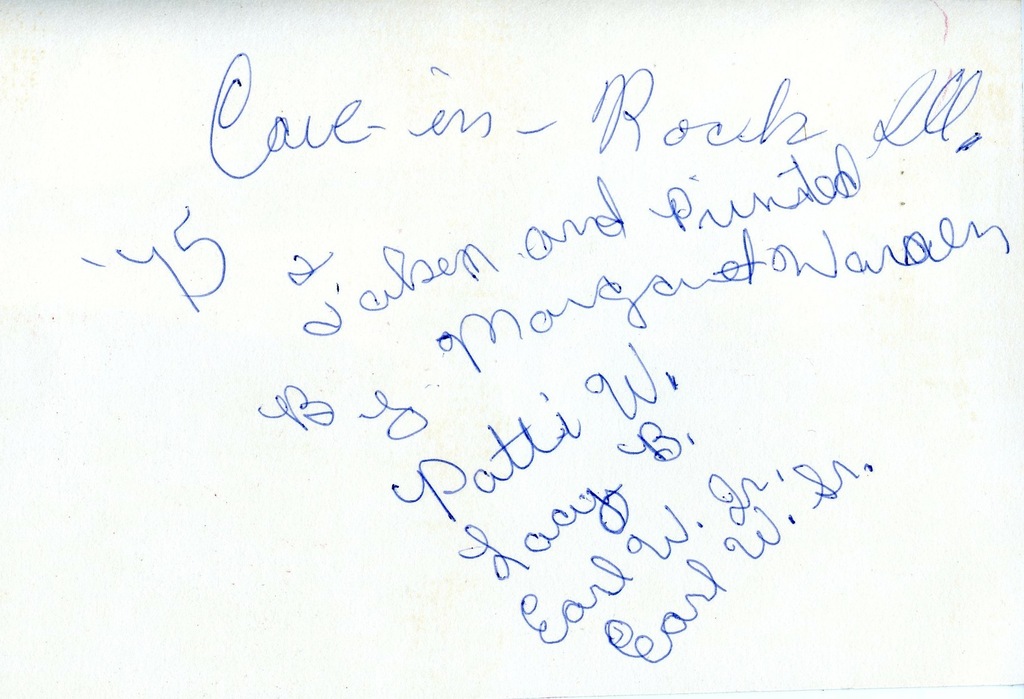 Cave-in-Rock Ill.
-75
Taken and Printed
By Margaret Warden
Patti W.
Lacy B.
Earl W. Jr.
Earl W. Sr.